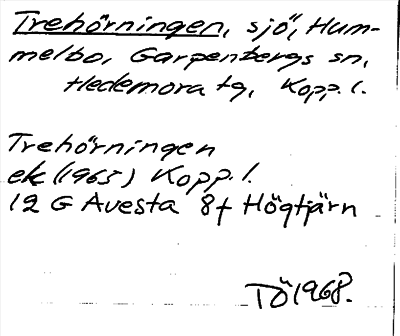 Trehörningen, sjö, Hum-
melbo, Garpenbergs sn,
Hedemora tg, Kopp. l.
Trehörningen
ek (1965) Kopp. l.
12 G Avesta 8f Högtjärn
TÖ 1968.